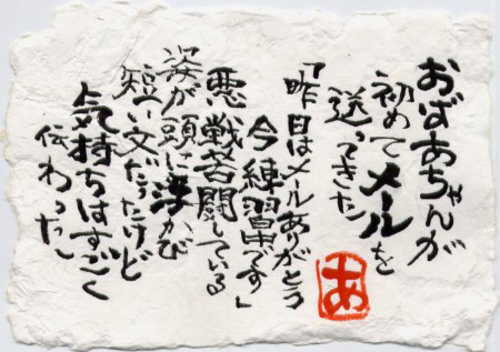 おばあちゃんが
初めてメールを
送ってきた
「昨日はメールありがとう
今練習中です」
悪戦苦闘している
姿が頭に浮かび
短い文だったけど
気持ちはすごく
伝わった
あ